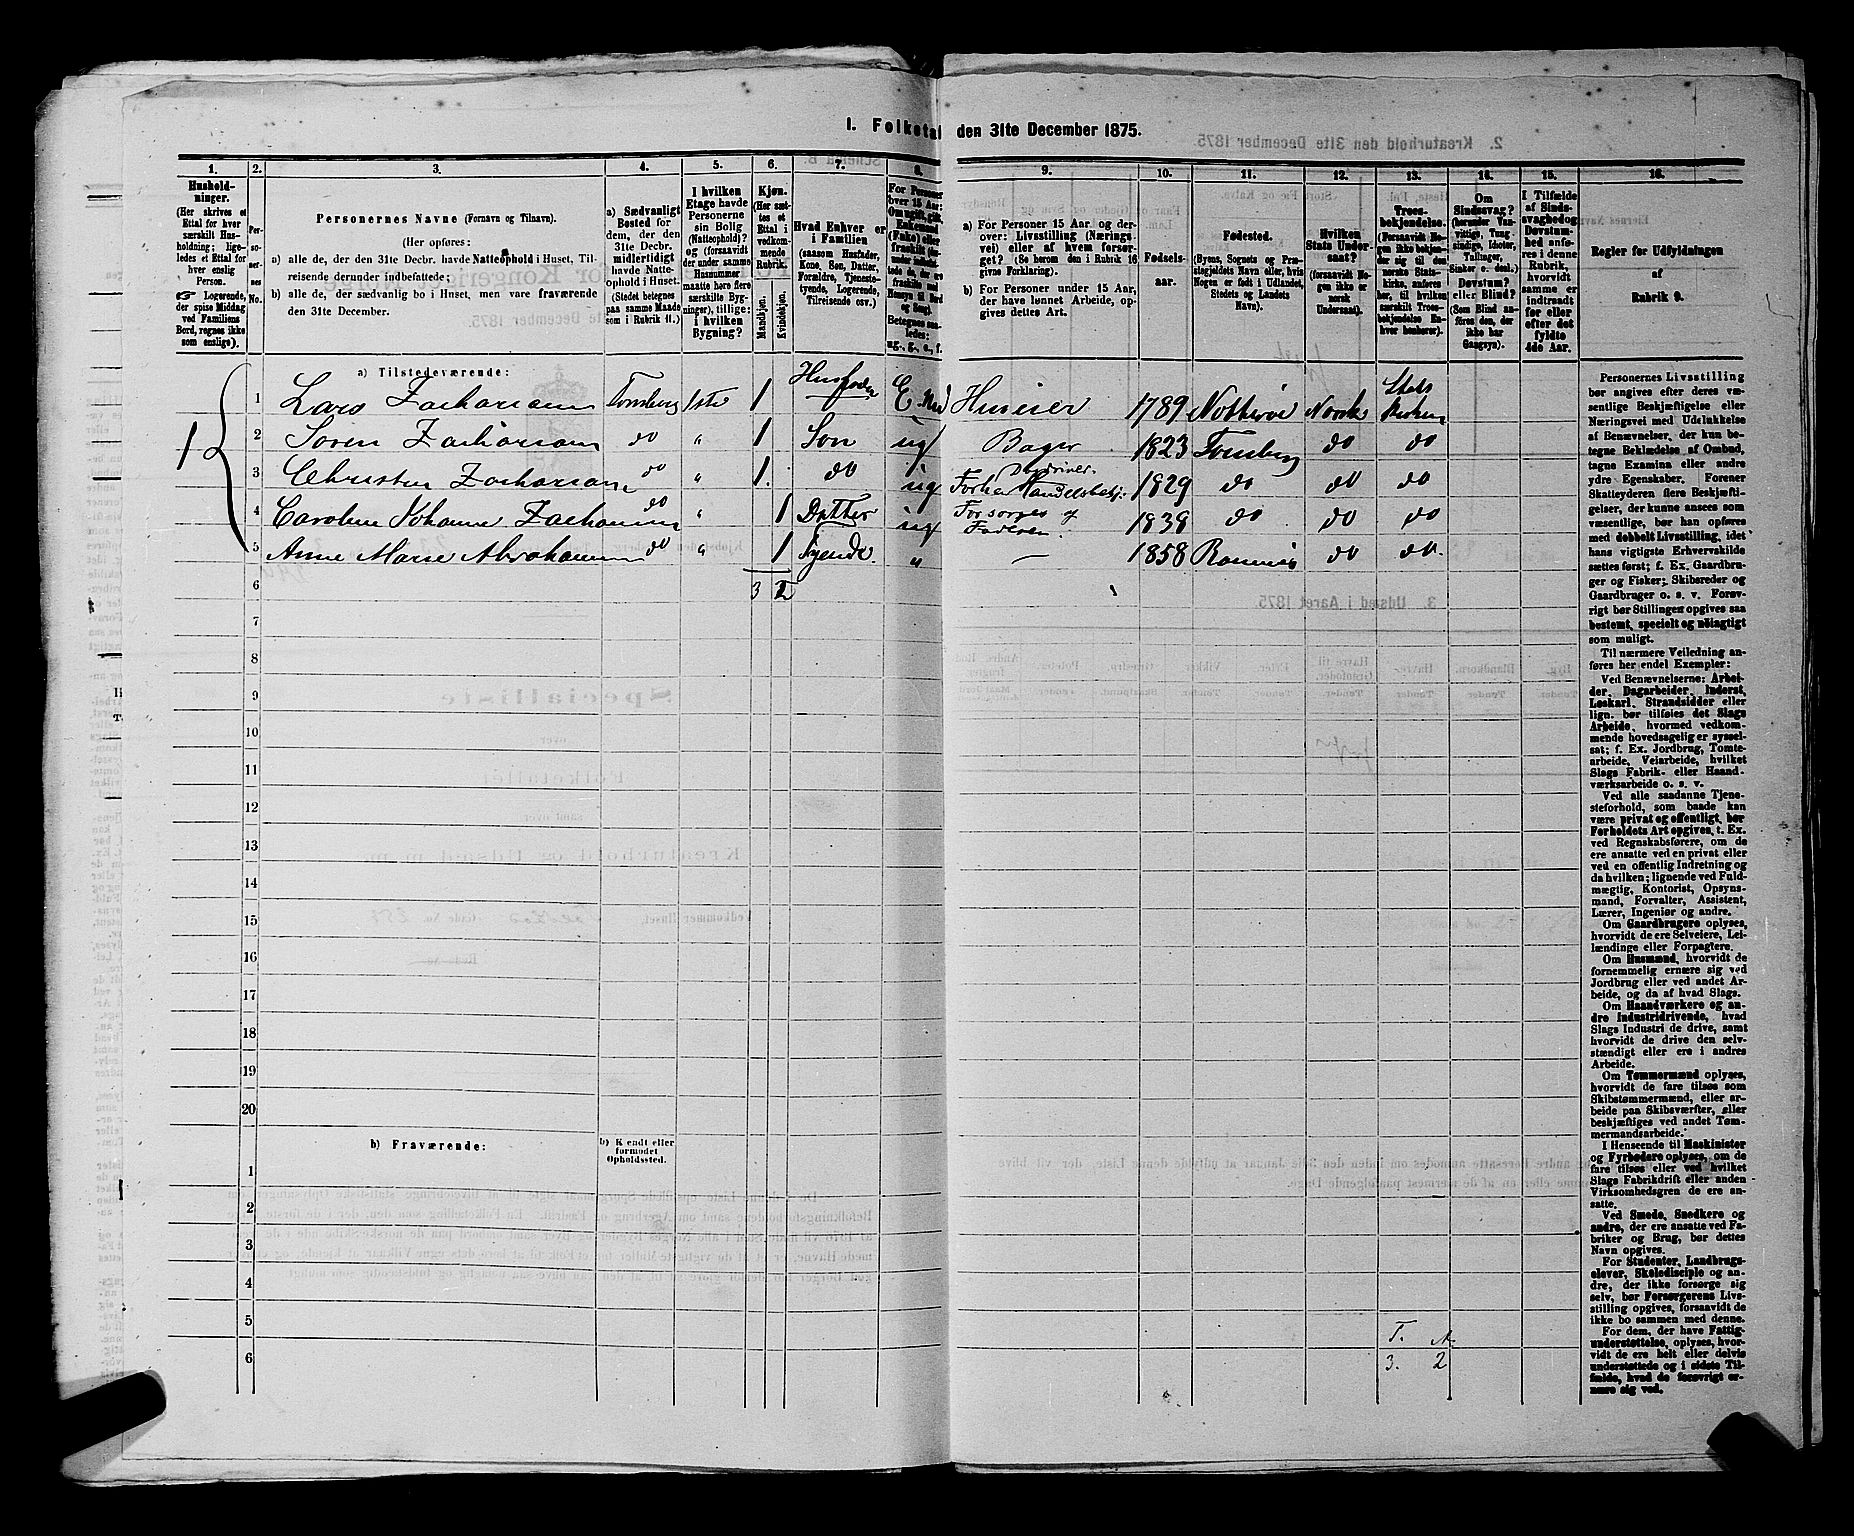 1. Folketal den 31te December 1875.
1. 2. 3. 4. 5. 6. 7. 8. 9. 10. 11. 12. 13. 14. 15. 16.
Hushold-
ninger.
(Her skrives et
Ettal for hver
særskilt Hus-
holdning; lige-
ledes et Ettal for
hver enslig
Person.
Logerende,
der spise Middag
ved Familiens
Bord, regnes ikke
som enslige).
Per-
so-
ner-
nes
No.
Personernes Navne (Fornavn og Tilnavn).
(Her opføres:
a) alle de, der den 31te Decbr. havde Natteophold i Huset, Til-
reisende derunder indbefattede;
b) alle de, der sædvanlig bo i Huset, men vare fraværende
den 31te December.
a) Sædvanligt
Bosted for
dem, der den
31te Decbr.
midlertidigt
havde Natte-
ophold i Huset.
(Stedet betegnes
paa samme Maade
som i Rubrik 11.)
I hvilken
Etage havde
Personerne
sin Bolig
(Natteophold)?
og (forsaavidt
der under samme
Husnummer
maatte høre flere
særskilte Byg-
ninger), tillige:
i hvilken
Bygning?
Kjøn.
(Her sæt-
tes et
Ettal i
vedkom-
mende
Rubrik.
Mandkjøn.
Kvindekjøn.
Hvad Enhver er
i Familien
(saasom Husfader,
Kone, Søn, Datter,
Forældre, Tjeneste-
tyende, Logerende,
Tilreisende osv.)
For Personer
over 15 Aar:
a) For Personer 15 Aar og der-
over: Livsstilling (Nærings-
vei) eller af hvem forsør-
get? (Se herom den i Rubrik 16
givne Forklaring).
b) For Personer under 15 Aar,
der have lønnet Arbeide, op-
gives dettes Art.
Fødsels-
aar.
Fødested.
(Byens, Sognets og Præ-
stegjeldets Navn eller, hvis
Nogen er født i Udlandet,
Stedets og Landets
Navn).
Hvilken
Stats Under-
saat?
(forsaavidt No-
gen ikke er
norsk
Undersaat).
Troes-
bekjendelse.
(Forsaavidt No-
gen ikke beken-
der sig til den
norske Stats-
kirke, anføres
her, til hvilken
særskilt Troes-
bekjendelse En-
hver henhører).
Om
Sindssvag?
(herunder Van-
vittige, Tung-
sindige, Idioter,
Tullinger,
Sinker o. desl.)
Døvstum?
eller Blind?
(Som Blind an-
føres den, der
ikke har
Gangsyn).
I Tilfælde
af Sinds-
svaghed og
Døvstum-
hed anfø-
res i denne
Rubrik,
hvorvidt
samme er
indtraadt
før eller
efter det
fyldte
4de Aar.
Regler for Udfyldningen
af
Rubrik 9.
a) Tilstedeværende:
1 Lars Zachariasen Tønsberg 1ste 1 Husfader E Huseier 1789 Nøtterøe Norsk Stats Kirken
1 2 Søren Zachariasen do „ 1 Søn ug Bager 1823 Tønsberg do do
3 Christen Zachariasen do „ 1. do ug 1829 do do do
4 Caroline Johanne Zachariasen do 1 Datter ug Forsørges af Faderen. 1839 do do do
5 Anne Marie Abrahamsen do „ 1 Tyende. „ — 1858 do do.
6 3 2
7
8
9
10
11
12
13
14
15
16
17
18
19
20
b) Fraværende:
b) Kjendt eller
formodet
Opholdssted.
1
2
3
4
5
6
T.
3. 2
Personernes Livsstilling
bør angives efter deres væ-
sentlige Beskjæftigelse eller
Næringsvei med Udelukkelse
af Benævnelser, der kun be-
tegne Beklædelse af Ombud,
tagne Examina eller andre
ydre Egenskaber. Forener
Skatteyderen flere Beskjæfti-
gelser, der kunne ansees som
væsentlige, bør han opføres
med dobbelt Livsstilling, idet
hans vigtigste Erhvervskilde
sættes først; f. Ex. Gaardbru-
ger og Fisker; Skibsreder og
Gaardbruger o. s. v. Forøv-
rigt bør Stillingen opgives saa
bestemt, specielt og nøiagtigt
som muligt.
Til nærmere Veiledning an-
føres her endel Exempler:
Ved Benævnelserne: Arbei-
der, Dagarbeider, Inderst,
Løskarl, Strandsidder eller
lign. bør tilføies det Slags
Arbeide, hvormed vedkom-
mende hovedsagelig er syssel-
sat; f. Ex. Jordbrug, Tomte-
arbeide, Veiarbeide, hvilket
Slags Fabrik- eller Haand-
værksarbeide o. s. v.
Ved alle saadanne Tjene-
steforhold, som baade kan
være privat og offentligt, bør
Forholdets Art opgives, t. Ex.
ved Regnskabsførere, om de
ere ansatte ved en privat eller
ved en offentlig Indretning og
da hvilken; lignende ved Fuld-
mægtig, Kontorist, Opsyns-
mand, Forvalter, Assistent,
Lærer, Ingeniør og andre.
Om Gaardbrugere oplyses,
hvorvidt de ere Selveiere, Lei-
lændinge eller Forpagtere.
Om Husmænd, hvorvidt de
fornemmelig ernære sig ved
Jordbrug eller ved andet Ar-
beide, og da af hvad Slags.
Om Haandværkere og an-
dre Industridrivende, hvad
Slags Industri de drive, samt
hvorvidt de drive den selv-
stændigt eller ere i andres
Arbeide.
Om Tømmermænd oplyses,
hvorvidt de fare tilsøs som
Skibstømmermænd, eller ar-
beide paa Skibsværfter, eller
beskjæftiges ved andet Tøm-
mermandsarbeide.
I Henseende til Maskinister
og Fyrbødere oplyses, om de
fare tilsøs eller ved hvilket
Slags Fabrikdrift eller anden
Virksomhedsgren de ere an-
satte.
Ved Smede, Snedkere og
andre, der ere ansatte ved Fa-
briker og Brug, bør dettes
Navn opgives.
For Studenter, Landbrugs-
elever, Skoledisciple og an-
dre, der ikke forsørge sig
selv, bør Forsørgerens Livs-
stilling opgives, forsaavidt de
ikke bo sammen med denne.
For dem, der have Fattig-
understøttelse, oplyses, hvor-
vidt de ere helt eller delvis
understøttede og i sidste Til-
fælde, hvad de forøvrigt er-
nære sig ved.